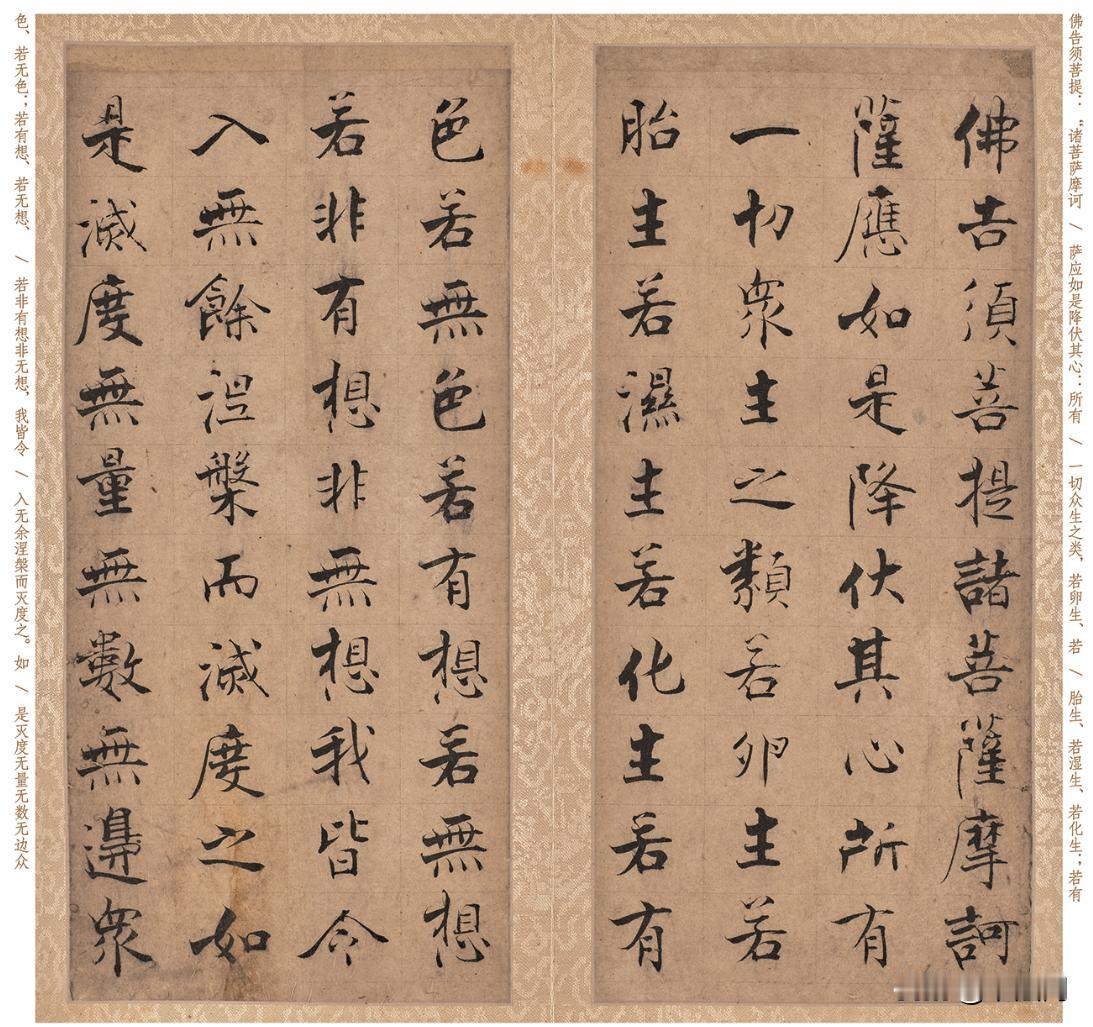 佛告须菩提：“诸菩萨摩诃 / 萨应如是降伏其心：所有 / 一切众生之类，若卵生、若 / 胎生、若湿生、若化生；若有
佛告須菩提諸菩薩摩訶
薩應如是降伏其心所有
一切眾生之類若卵生若
胎生若濕生若化生若有
色若無色若有想若無想
若非有想非無想我皆令
入無餘涅槃而滅度之如
是滅度無量無數無邊眾
色、若无色；若有想、若无想、 / 若非有想非无想，我皆令 / 入无余涅槃而灭度之。如 / 是灭度无量无数无边众